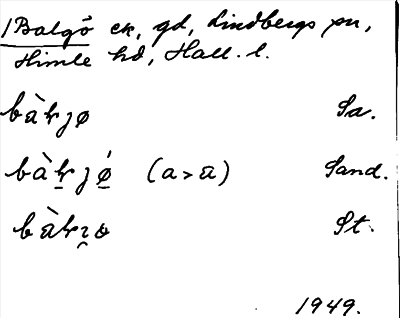 /Balgö ek, gd, Lindbergs sn,
Himle hd, Hall. l.
bàkjø Sa.
bàk̠jǿ̠ (a > a) Sand.
St.
1949.